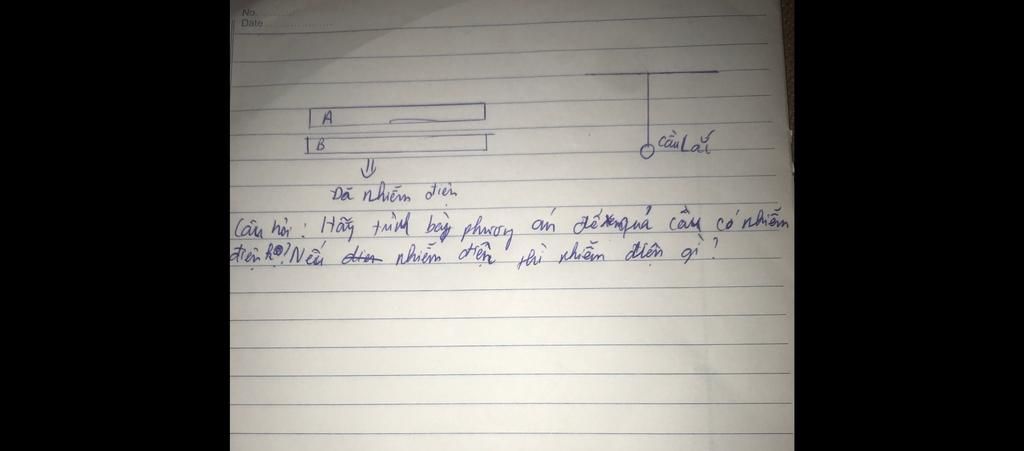 No.
Date
A
B
cầu Lắi
Đã nhiễm điện
Câu hỏi: Hãy trình bày phương án để quả cầu có nhiễm
điện ko? Nếu nhiễm điện thì nhiễm điện gì?